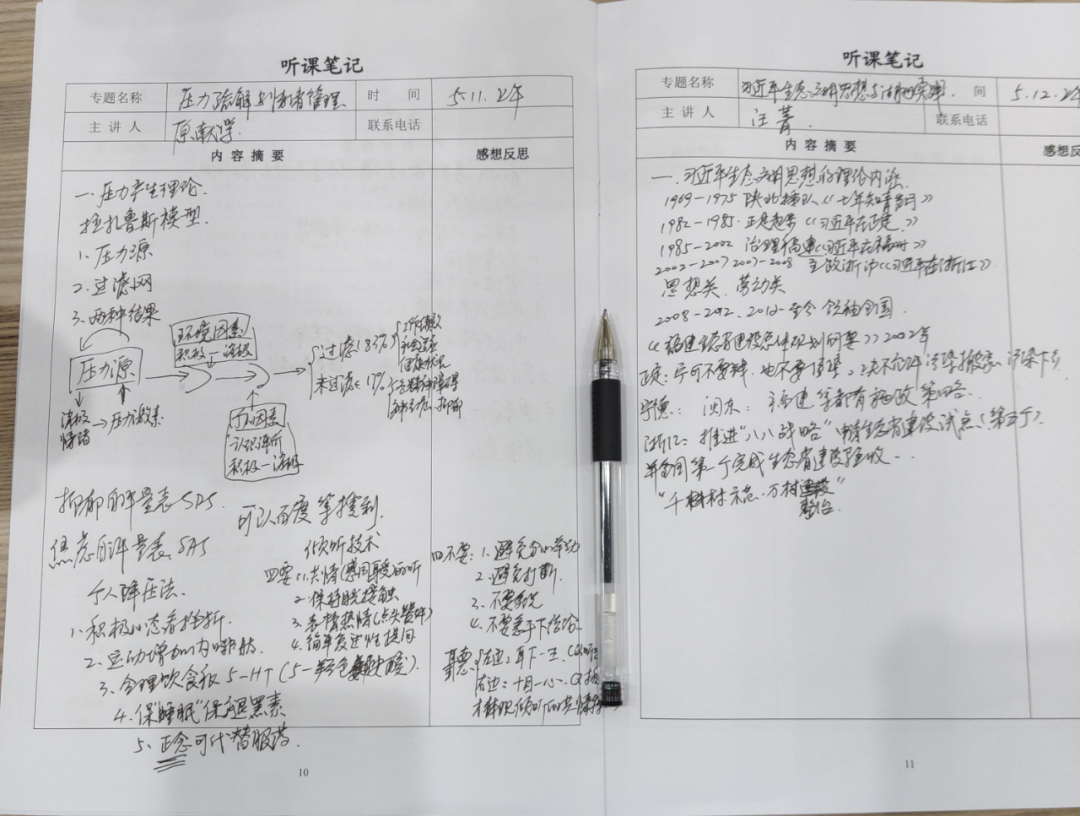 听课笔记
专题名称 压力疏解与情绪管理 时 间 5.11.上午
主 讲 人 原献学 联系电话
内 容 摘 要 感想反思
一.压力产生理论
拉扎鲁斯模型
1、压力源
2.过滤网
3.两种结果
环境因素
积极—消极
压力源
过滤(83%)
未过滤(17%)
工作倦怠
消极情绪
压力效果
个人因素
认识评价
积极—消极
抑郁自评量表SDS
焦虑自评量表SAS
可以百度等搜到.
个人降压法.
1、积极心态看挫折
2、运动增加内啡肽
3、合理饮食和5-HT(5-羟色胺
4.保睡眠"保褪黑素
5、正念可代替服药
倾听技术
四要:1.共情(感同身受)的听
2.保持眼接触
3、表情热情(点头赞许)
4.简单反述性提问
四不要:1.避免分心举动
2.避免打断
3、不要多说
4.不要急于下结论
左边:耳下一王.
右边:十目一心.
10
听课笔记
专题名称 习近平生态文明思想与 实践. 间 5.12.上午
主 讲 人 汪菁 联系电话
内 容 摘 要 感想反
一.习近平生态文明思想的理论内涵.
1969-1975 陕北插队《七年知青岁月》
1982-1985.正定 《习近平在正定》
1985-2002 治理 《习近平在福州》
2002-2007 2007-2008 主政浙沪《习近平在浙江》
思想关、劳动关
2008-2012、2012-至今 全国
《福建生态省建设总体规划纲要》2002年
正定:宁可不要钱.也不要污染、决不允许污染搬家,污染下乡
宁德: 闽东: 福建等都有施政策略.
浙江:推进"八八战略"申请生态省建设试点(第五个)
并全国第一个完成生态省建设验收...
"千村示范.万村整治"
11